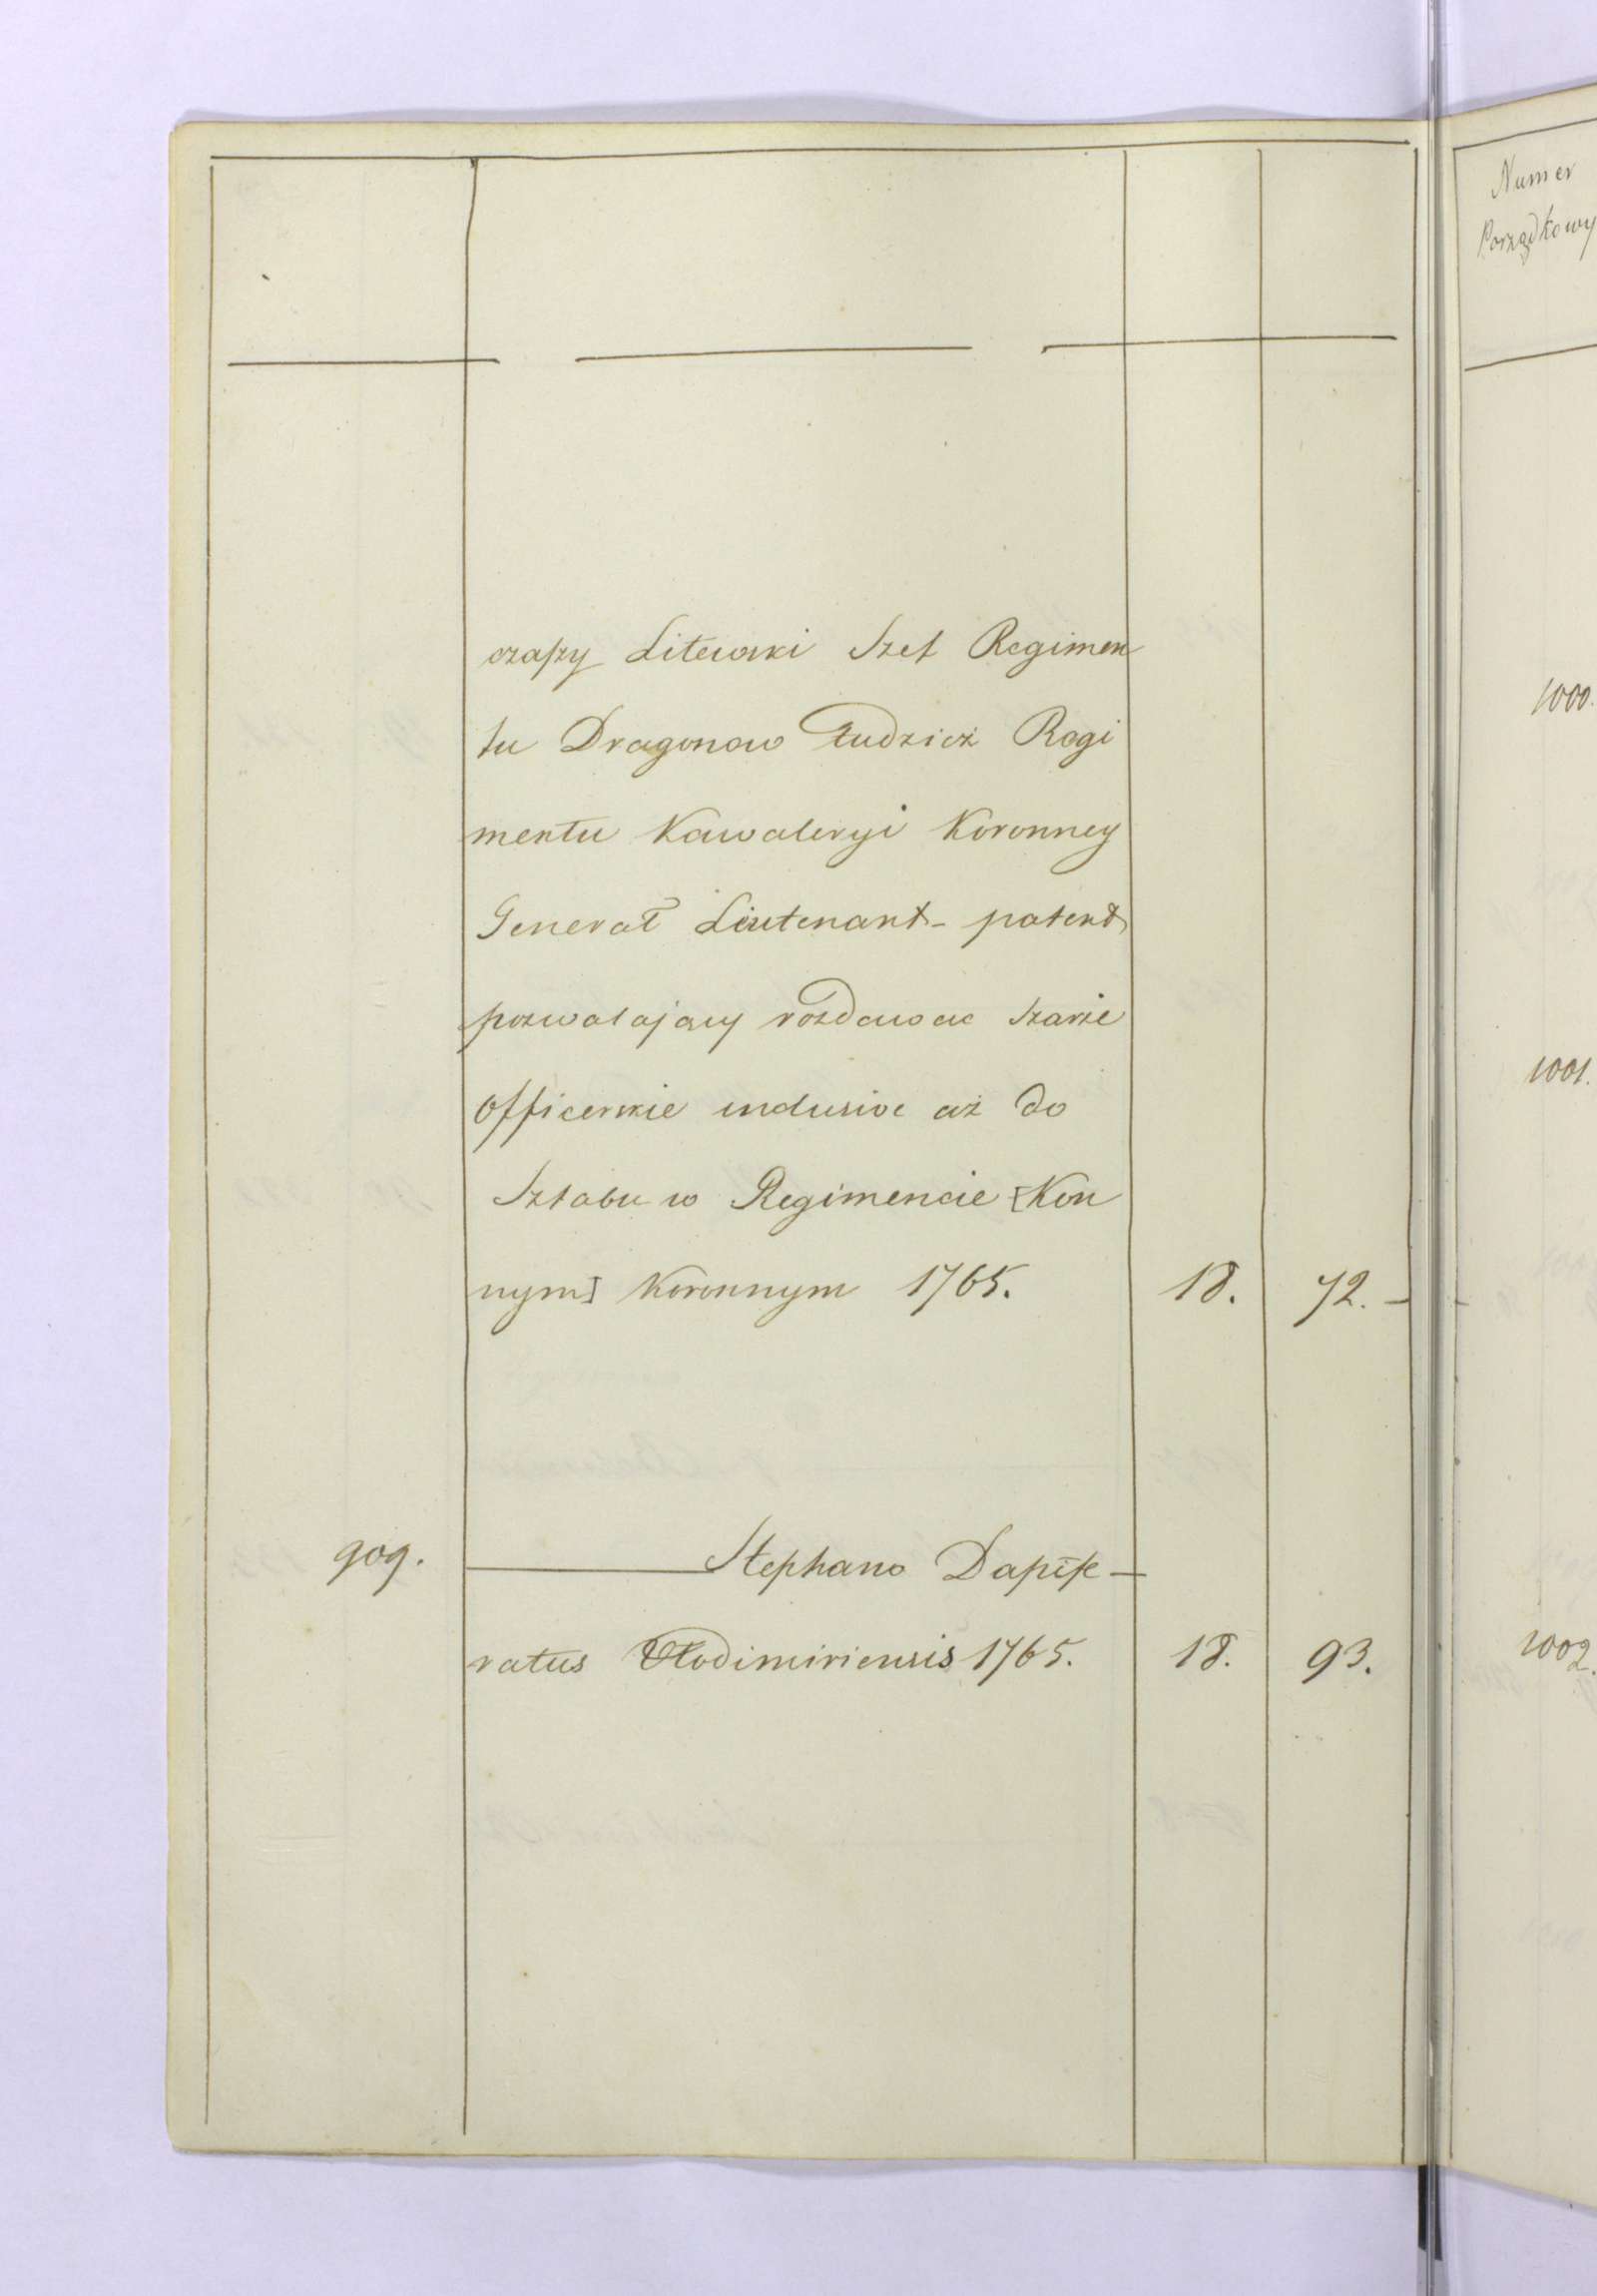 czaszy Litewski Szef Regimen
tu Dragonow tudzież Regi
mentu Kawaleryi Koronney
Generał Lieutenant - patent
pozwalający rozdawac szarże
Officerskie inclusive aż do
Sztabu w Regimencie [Kon
nym] Koronnym 1765. 18. 72. -
909. ——— Stephano Dapife-
ratus Włodimiriensis 1765. 18. 93.
Numer
Porządkowy
1000.
1001.
1002.